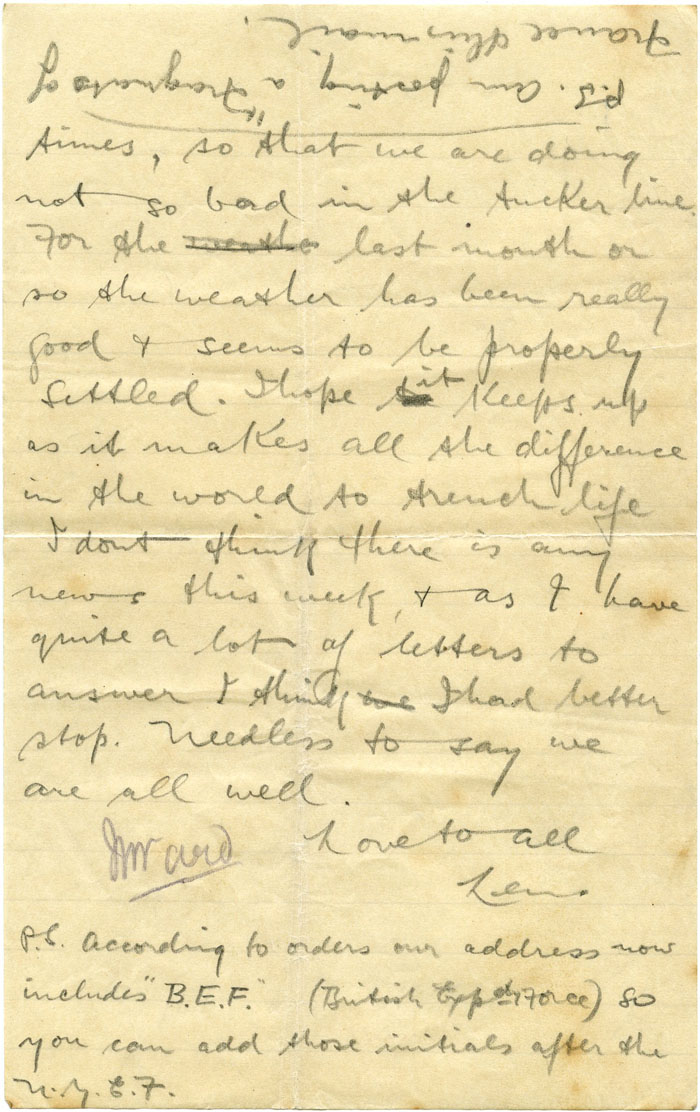 P.S. Am posting a "Fragments of
France this mail.
times, so that we are doing
not so bad in the tucker line
For the last month or
so the weather has been really
good & seems to be properly
settled. I hope it keeps up
as it makes all the difference
in the world to trench life
I dont think there is any
news this week, & as I have
quite a lot of letters to
answer I think I had better
stop. Needless to say we
are all well.
Love to all
Len.
Ward
P.S. According to orders our address now
includes "B.E.F." (British Exp.d. Force) so
you can add those initials after the
N.Z.E.F.